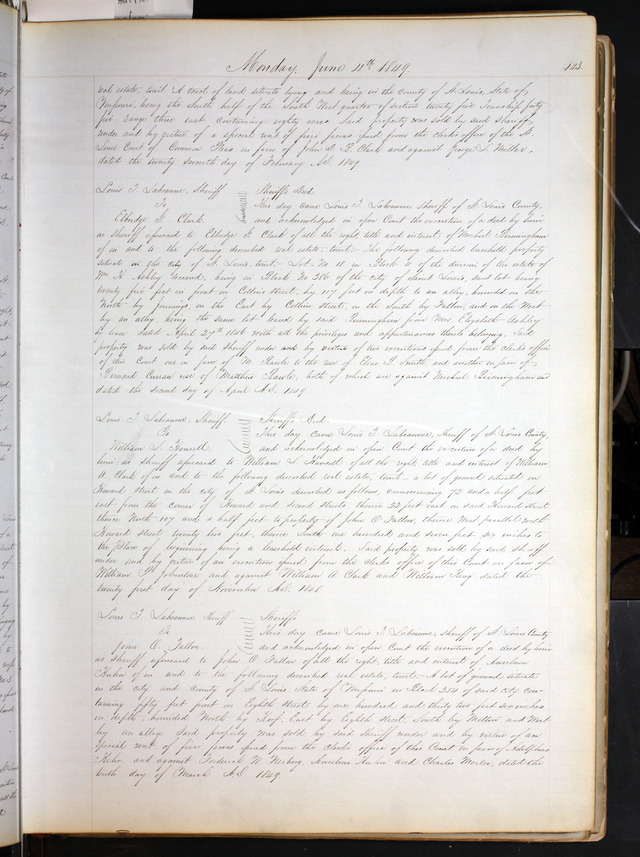 Monday, June 4th 1849. 143.
real estate, towit A tract of land situate lying and being in the County of St Louis, State of
Missouri, being the South half of the South West quarter of section twenty five Township forty
five range three east containing eighty acres. Said property was sold by said sheriff
under and by virtue of a special writ of fieri facias issued from the clerks office of the St.
Louis Court of Common Pleas in favor of John D. Clark and against George S. Miller,
dated the twenty seventh day of February A.D. 1849
Louis T. Labeaume, Sheriff Sheriffs Deed.
To This day came Louis T. Labeaume sheriff of St Louis County,
Elbridge G. Clark. and acknowledged in open Court the execution of a deed by him
as sheriff aforesaid to Elbridge G. Clark of all the right, title and interest, of Michael Birmingham
of in and to the following described real estate towit: The following described leasehold property
situate in the city of St Louis, towit Lot No 11 in Block 2 of the division of the estate of
Wm H. Ashley deceased, being in Block No 266 of the city of Saint Louis, said lot being
twenty five feet in front on Collins street, by 117 feet in depth to an alley, bounded on the
North by Jennings, on the East by Collins street, on the South by Fallon, and on the West
by an alley, being the same lot leased by said Birmingham from Mrs Elizabeth Ashley
by lease dated April 27th 1846 with all the privileges and appurtenances thereto belonging. Said
property was sold by said sheriff under and by virtue of two executions issued from the clerks office
of this Court one in favor of M. Rawle to the use of Smith, and another in favor of
Bernard Curran use of Matthias Rawle, both of which are against Michael Birmingham and
dated the second day of April A.D. 1849
Louis T. Labeaume, Sheriff Sheriffs Deed.
To This day came Louis T. Labeaume, Sheriff of St Louis County,
William S. and acknowledged in open Court the execution of a deed by
him as sheriff aforesaid to William S. of all the right, title and interest of William
A. Clark of in and to the following described real estate, towit: a lot of ground situated on
Howard street in the city of St Louis described as follows, commencing 72 and a half feet
east from the corner of Howard and Second streets, thence 22 feet east on said Howard street,
thence North 107 and a half feet to property of John O Fallon, thence West parallel with
Howard street twenty two feet, thence South one hundred and seven feet six inches to
the place of beginning being a leasehold interest. Said property was sold by said sheriff
under and by virtue of an execution issued from the clerks office of this Court in favor of
William P. Johnston and against William A. Clark and William King dated the
twenty first day of November A.D. 1848
Louis T. Labeaume Sheriff Sheriffs
To This day came Louis T. Labeaume, Sheriff of St Louis County
John O. Fallon. and acknowledged in open Court the execution of a deed by him
as sheriff aforesaid to John O Fallon of all the right, title and interest of Anselm
Hahn of in and to the following described real estate, towit: A lot of ground situate
in the city and County of St Louis State of Missouri in Block 354 of said city con-
taining fifty feet front on Eighth Street by one hundred and thirty two feet six inches
in depth, bounded North by Roof, East by Eighth Street, South by and West
by an alley. Said property was sold by said Sheriff under and by virtue of an
special writ of fieri facias issued from the clerks office of this Court in favor of Adolphus
and against Frederick W. Anselm Hahn and Charles dated the
tenth day of March A.D. 1849